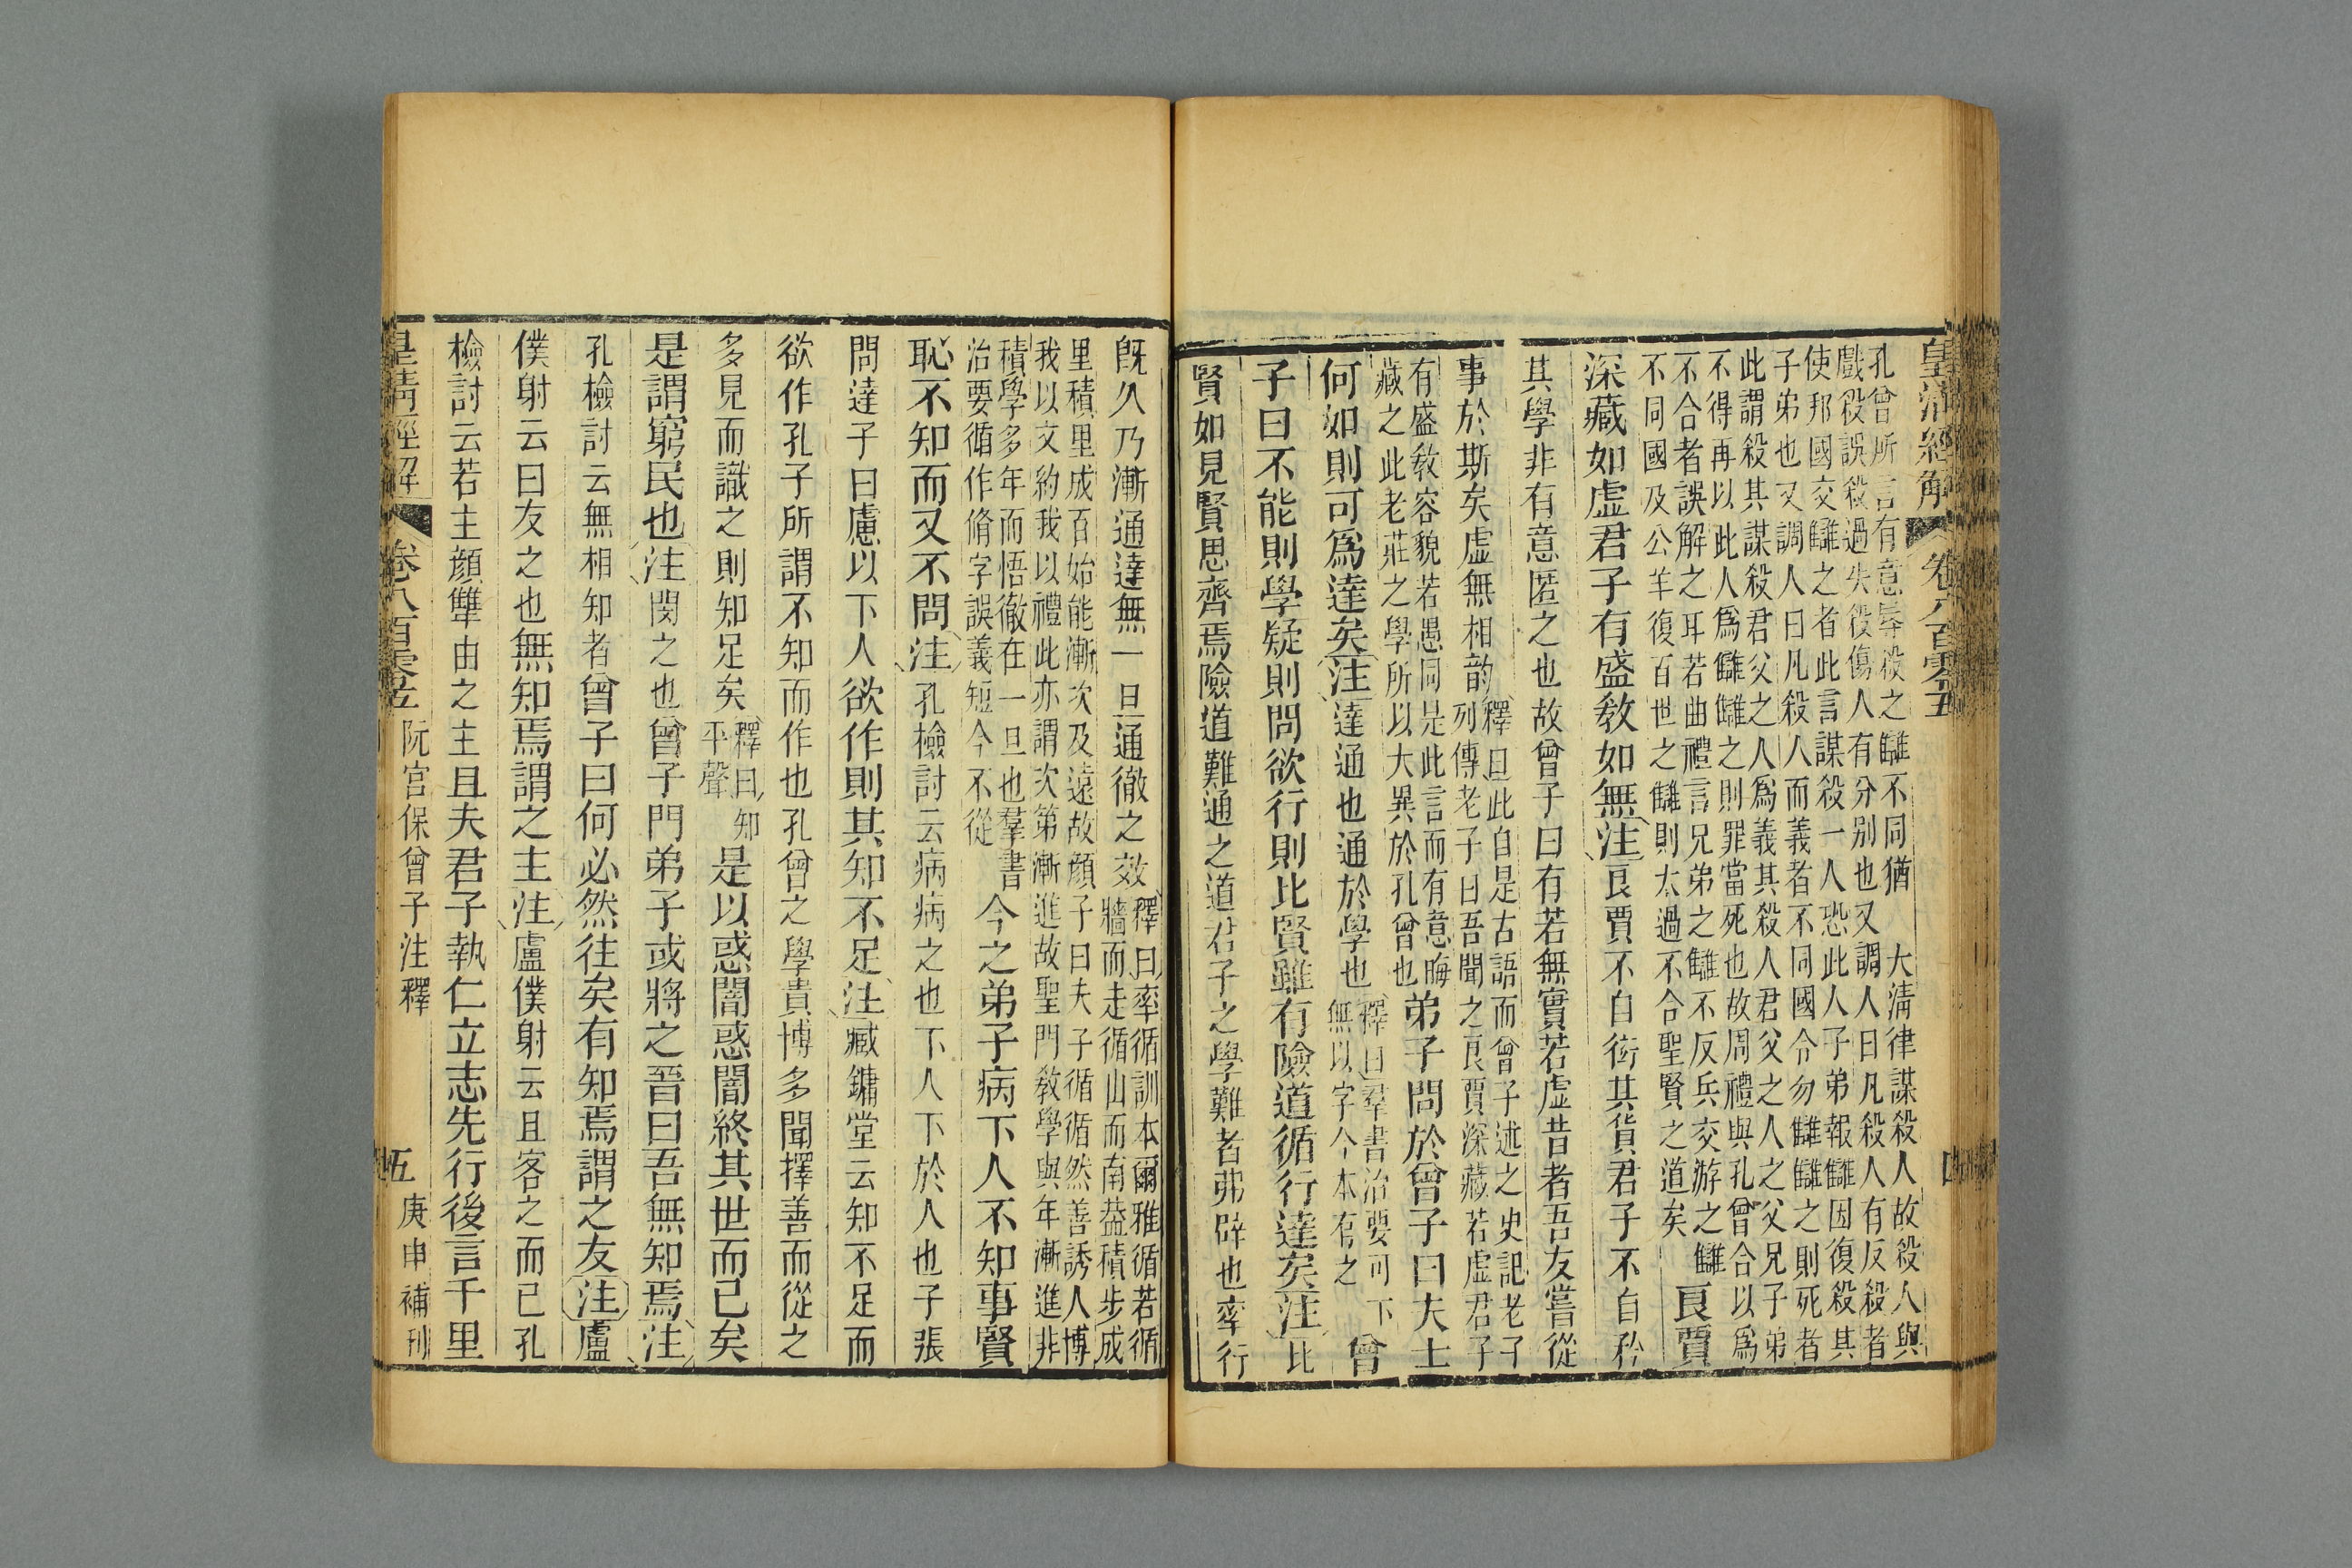 皇清經解
卷八百零五
孔曾所言有意辱殺之讎不同猶 大清律謀殺人故殺人與
戲殺誤殺過失殺傷人有分别也又調人曰凡殺人有反殺者
使邦國交讎之者此言謀殺一人恐此人子弟報讎因復殺其
子弟也又調人曰凡殺人而義者不同國令勿讎讎之則死者
此謂殺其謀殺君父之人爲義其殺人君父之人之父兄子弟
不得再以此人爲讎讎之則罪當死也故周禮與孔曾合以爲
不合者誤解之耳若曲禮言兄弟之讎不反兵交游之讎
不同國及公羊復百世之讎則太過不合聖賢之道矣
良賈
深藏如虛君子有盛敎如無注良賈不自衒其貨君子不自矜
其學非有意匿之也故曾子曰有若無實若虛昔者吾友嘗從
事於斯矣虛無相韵
釋曰此自是古語而曾子述之史記老子
列傳老子曰吾聞之良賈深藏若虛君子
有盛敎容貌若愚同是此言而有意晦
藏之此老莊之學所以大異於孔曾也
弟子問於曾子曰夫士
何如則可爲達矣注達通也通於學也
釋曰羣書治要可下
無以字今本有之
曾
子曰不能則學疑則問欲行則比賢雖有險道循行達矣注比
賢如見賢思齊焉險道難通之道君子之學難者弗辟也率行
旣久乃漸通達無一旦通徹之效
釋曰率循訓本爾雅循若循
牆而走循山而南葢積步成
里積里成百始能漸次及遠故顔子曰夫子循循然善誘人博
我以文約我以禮此亦謂次第漸進故聖門敎學與年漸進非
積學多年而悟徹在一旦也羣書
治要循作脩字誤義短今不從
今之弟子病下人不知事賢
恥不知而又不問注孔檢討云病病之也下人下於人也子張
問達子曰慮以下人欲作則其知不足注臧鏞堂云知不足而
欲作孔子所謂不知而作也孔曾之學貴博多聞擇善而從之
多見而識之則知足矣
釋曰知
平聲
是以惑闇惑闇終其世而已矣
是謂窮民也注閔之也曾子門弟子或將之晉曰吾無知焉注
孔檢討云無相知者曾子曰何必然往矣有知焉謂之友注盧
僕射云曰友之也無知焉謂之主注盧僕射云且客之而已孔
檢討云若主顔讐由之主且夫君子執仁立志先行後言千里
皇清經解
卷八百零五
阮宮保曾子注釋
五
庚申補刊